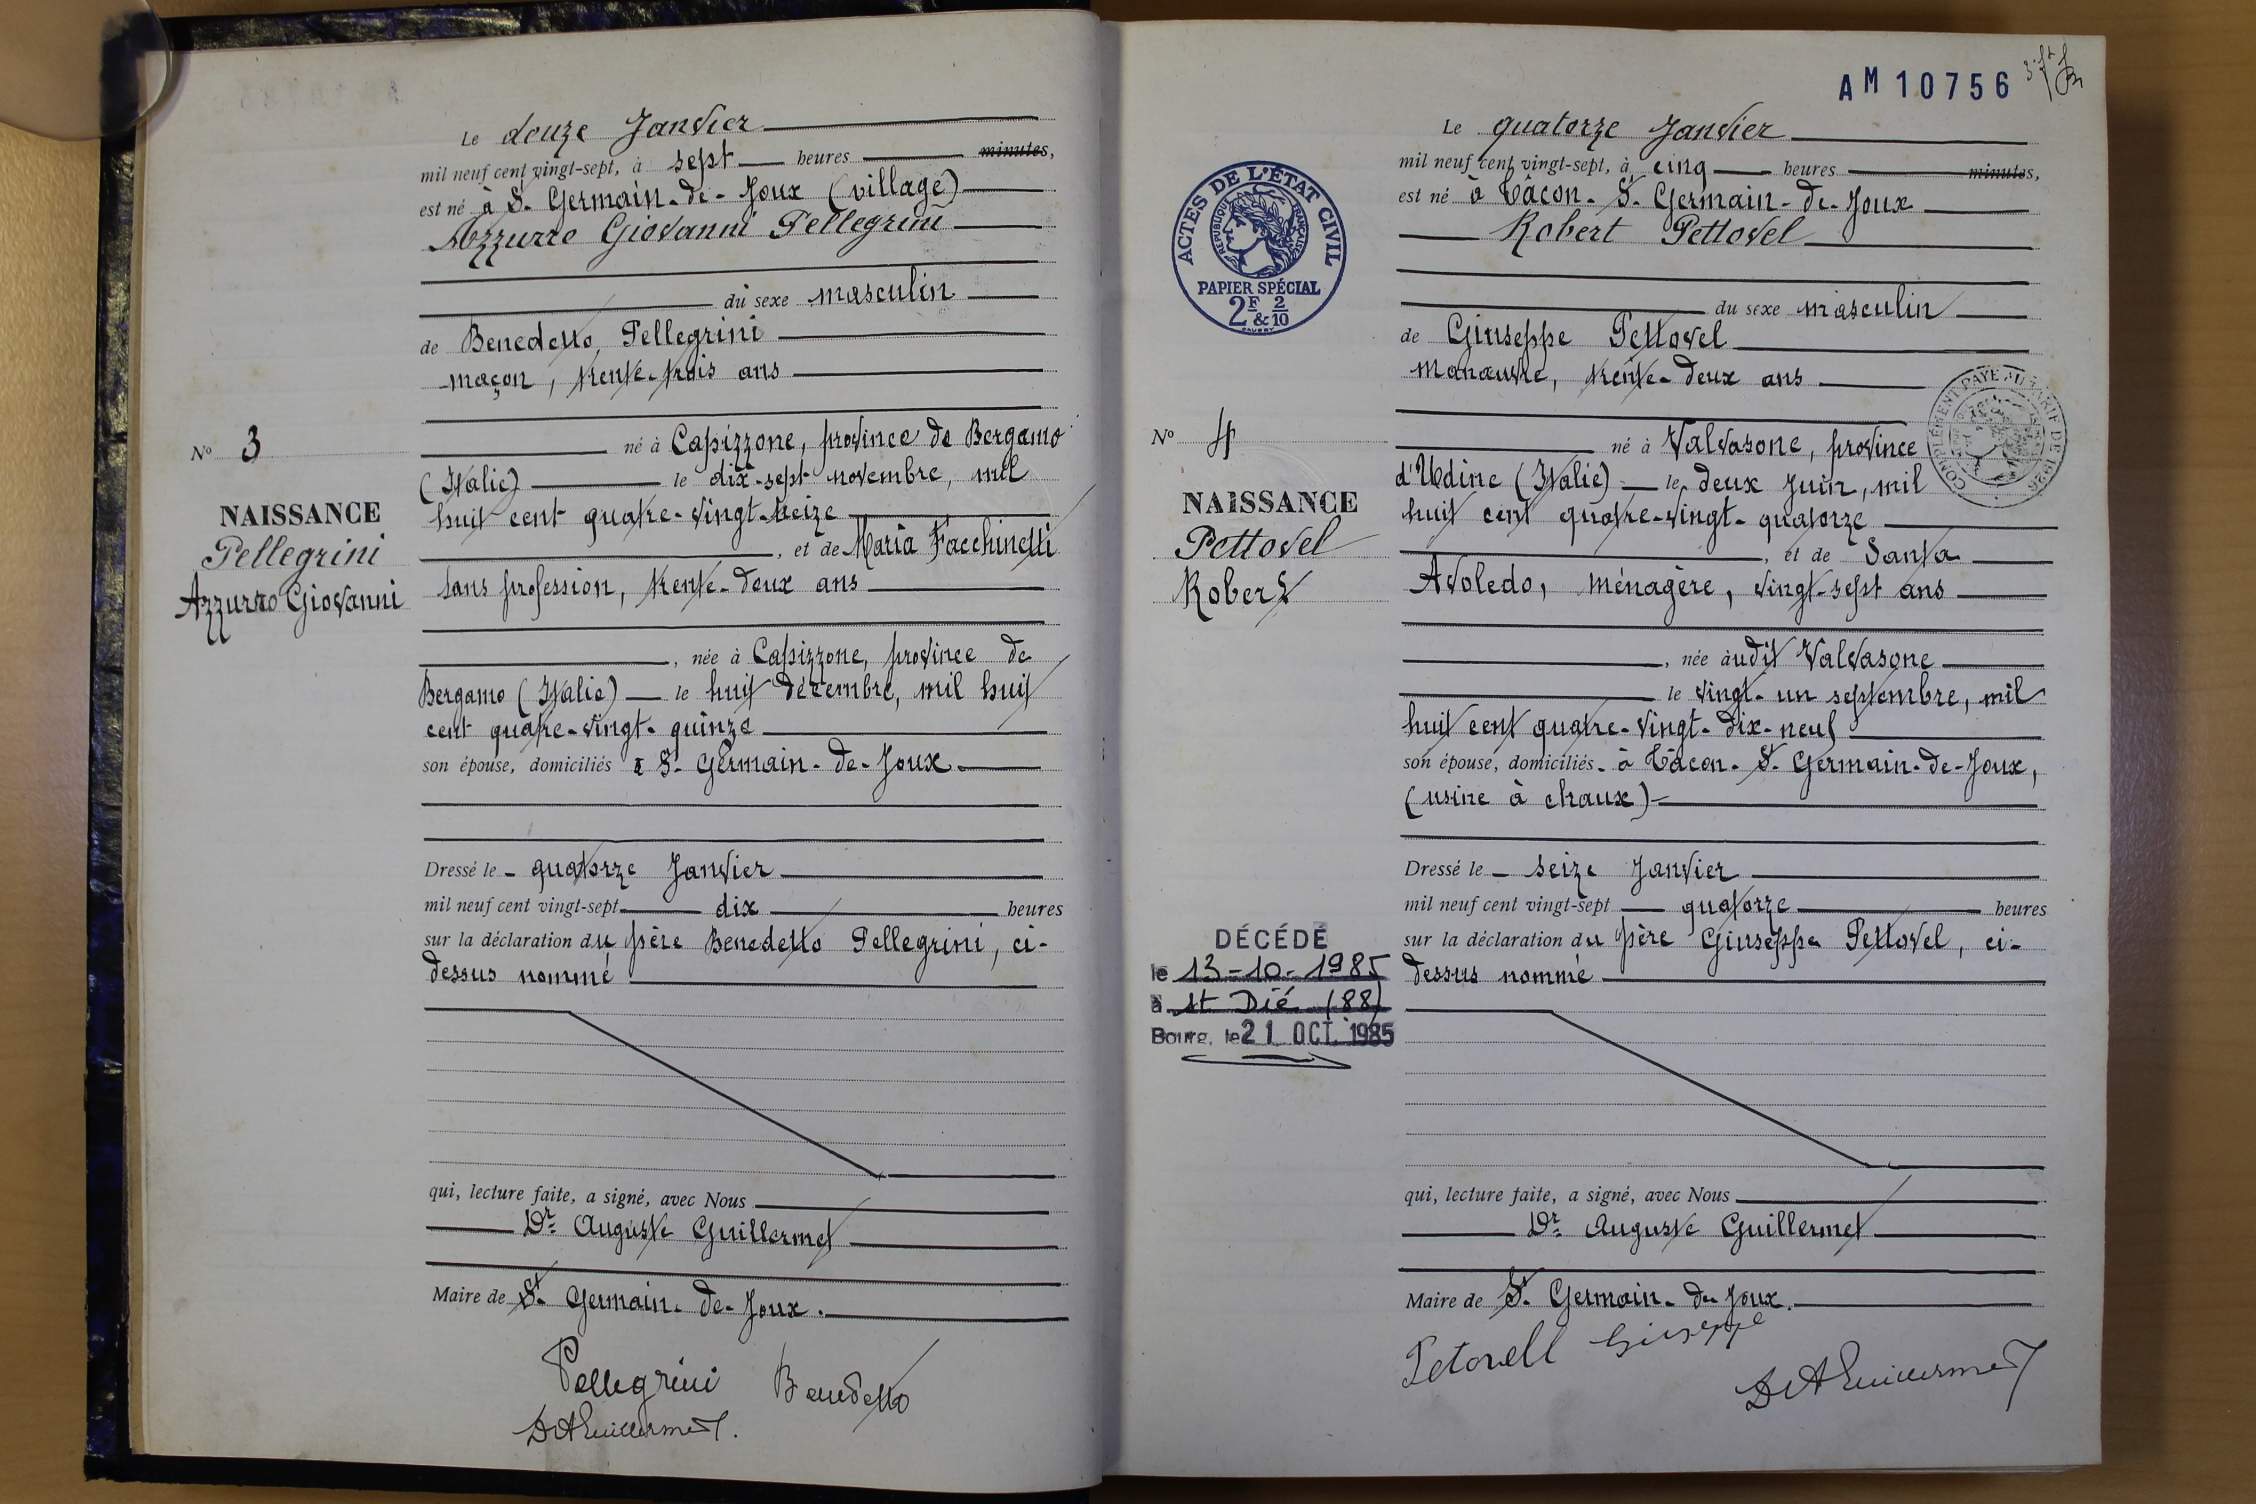 Le douze Janvier
mil neuf cent vingt-sept, à sept heures minutes,
est né à St. Germain-de-Joux (village)
Azzurro Giovanni Pellegrini
du sexe masculin
de Benedetto Pellegrini
maçon, trente-trois ans
né à Capizzone, province de Bergamo
(Italie) le dix-sept novembre, mil
huit cent quatre-vingt-treize
, et de Maria Facchinetti
sans profession, trente-deux ans
, née à Capizzone, province de
Bergamo (Italie) le huit décembre, mil huit
cent quatre-vingt-quinze
son épouse, domiciliés à St. Germain-de-Joux
Dressé le quatorze Janvier
mil neuf cent vingt-sept dix heures
sur la déclaration du père Benedetto Pellegrini, ci-
dessus nommé
qui, lecture faite, a signé, avec Nous
Dr. Auguste Guillermet
Maire de St. Germain-de-Joux.
Pellegrini Benedetto
Dr A Guillermet.
No 3
NAISSANCE
Pellegrini
Azzurro Giovanni
AM 10756
Le quatorze Janvier
mil neuf cent vingt-sept, à cinq heures minutes,
est né à Tâcon-St. Germain-de-Joux
Robert Pettovel
du sexe masculin
de Giuseppe Pettovel
manœuvre, trente-deux ans
né à Valvasone, province
d'Udine (Italie) le deux Juin, mil
huit cent quatre-vingt-quatorze
, et de Santa
Avoledo, ménagère, vingt-sept ans
, née àudit Valvasone
le vingt-un septembre, mil
huit cent quatre-vingt-dix-neuf
son épouse, domiciliés à Tâcon-St. Germain-de-Joux,
(usine à chaux)
Dressé le seize Janvier
mil neuf cent vingt-sept quatorze heures
sur la déclaration du père Giuseppe Pettovel, ci-
dessus nommé
qui, lecture faite, a signé, avec Nous
Dr. Auguste Guillermet
Maire de St. Germain-de-Joux.
Petovell Giuseppe
Dr A Guillermet
ACTES DE L'ÉTAT CIVIL
RÉPUBLIQUE FRANÇAISE
PAPIER SPÉCIAL
2F & 2/10
COMPLÉMENT PAYÉ AU TARIF DE 1926
No 4
NAISSANCE
Pettovel
Robert
DÉCÉDÉ
le 13-10-1985
à St Dié (88)
Bourg, le 21 OCT. 1985